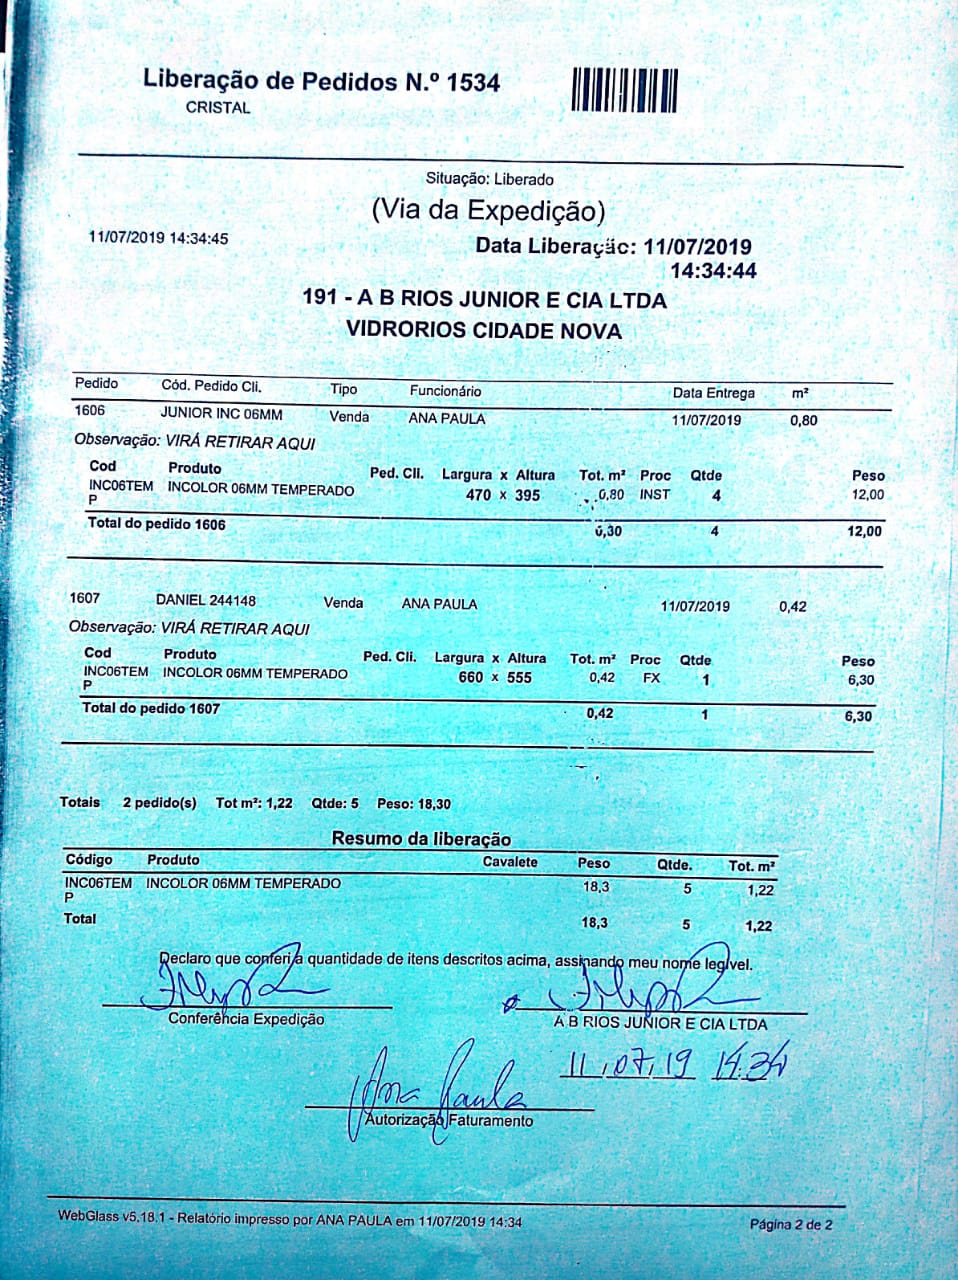 Liberação de Pedidos N.º 1534
CRISTAL
Situação: Liberado
(Via da Expedição)
11/07/2019 14:34:45
Data Liberação: 11/07/2019
14:34:44
191 - A B RIOS JUNIOR E CIA LTDA
VIDRORIOS CIDADE NOVA
Pedido Cód. Pedido Cli. Tipo Funcionário Data Entrega m²
1606 JUNIOR INC 06MM Venda ANA PAULA 11/07/2019 0,80
Observação: VIRÁ RETIRAR AQUI
Cod Produto Ped. Cli. Largura x Altura Tot. m² Proc Qtde Peso
INC06TEM INCOLOR 06MM TEMPERADO 470 x 395 0,80 INST 4 12,00
P
Total do pedido 1606 0,80 4 12,00
1607 DANIEL 244148 Venda ANA PAULA 11/07/2019 0,42
Observação: VIRÁ RETIRAR AQUI
Cod Produto Ped. Cli. Largura x Altura Tot. m² Proc Qtde Peso
INC06TEM INCOLOR 06MM TEMPERADO 660 x 555 0,42 FX 1 6,30
P
Total do pedido 1607 0,42 1 6,30
Totais 2 pedido(s) Tot m²: 1,22 Qtde: 5 Peso: 18,30
Resumo da liberação
Código Produto Cavalete Peso Qtde. Tot. m²
INC06TEM INCOLOR 06MM TEMPERADO 18,3 5 1,22
P
Total 18,3 5 1,22
Declaro que conferi a quantidade de itens descritos acima, assinando meu nome legível.
Conferência Expedição
A B RIOS JUNIOR E CIA LTDA
11/07/19 14:34
Ana Paula
Autorização Faturamento
WebGlass v5.18.1 - Relatório impresso por ANA PAULA em 11/07/2019 14:34
Página 2 de 2